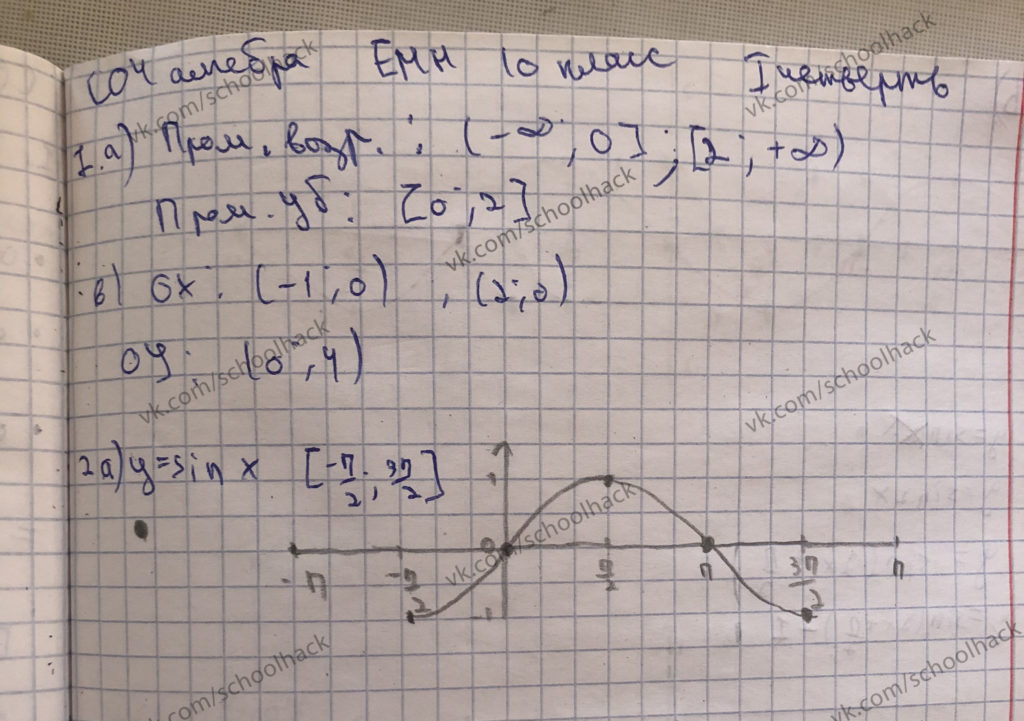 СОЧ алгебра ЕМН 10 класс I четверть
1.а) Пром. возр.: (-∞; 0]; [2; +∞)
Пром. уб: [0; 2]
в) OX: (-1; 0), (2; 0)
OY: (0; 4)
2а) y=sin x [-π/2; 3π/2]
1
0
-π -π/2 π/2 π 3π/2 π
-1
vk.com/schoolhack
vk.com/schoolhack
vk.com/schoolhack
vk.com/schoolhack
vk.com/schoolhack
vk.com/schoolhack
vk.com/schoolhack
vk.com/schoolhack